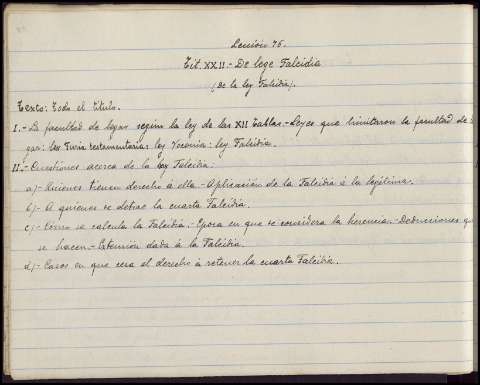 Lección 75.
Tit. XXII.- De lege Falcidia
(De la ley Falcidia).
Texto: Todo el título.
I.- La facultad de legar según la ley de las XII Tablas.- Leyes que limitaron la facultad de
gar: ley Furia testamentaria: ley Voconia: ley Falcidia.
II.- Cuestiones acerca de la ley Falcidia:
a)- Quienes tienen derecho á ella.- Aplicación de la Falcidia á la legítima.
b)- A quienes se debe la cuarta Falcidia.
c)- Cómo se calcula la Falcidia.- Epoca en que se considera la herencia.- Deducciones que
se hacen.- Extensión dada á la Falcidia.
d)- Casos en que cesa el derecho á retener la cuarta Falcidia.